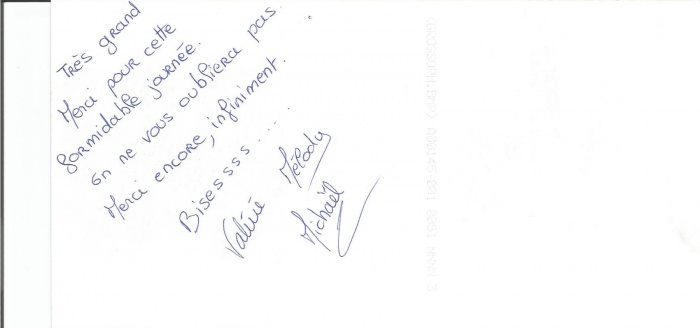 Très grand
Merci pour cette
formidable journée.
On ne vous oubliera pas.
Merci encore, infiniment.
Bisessss....
Valérie Mélody
Michaël